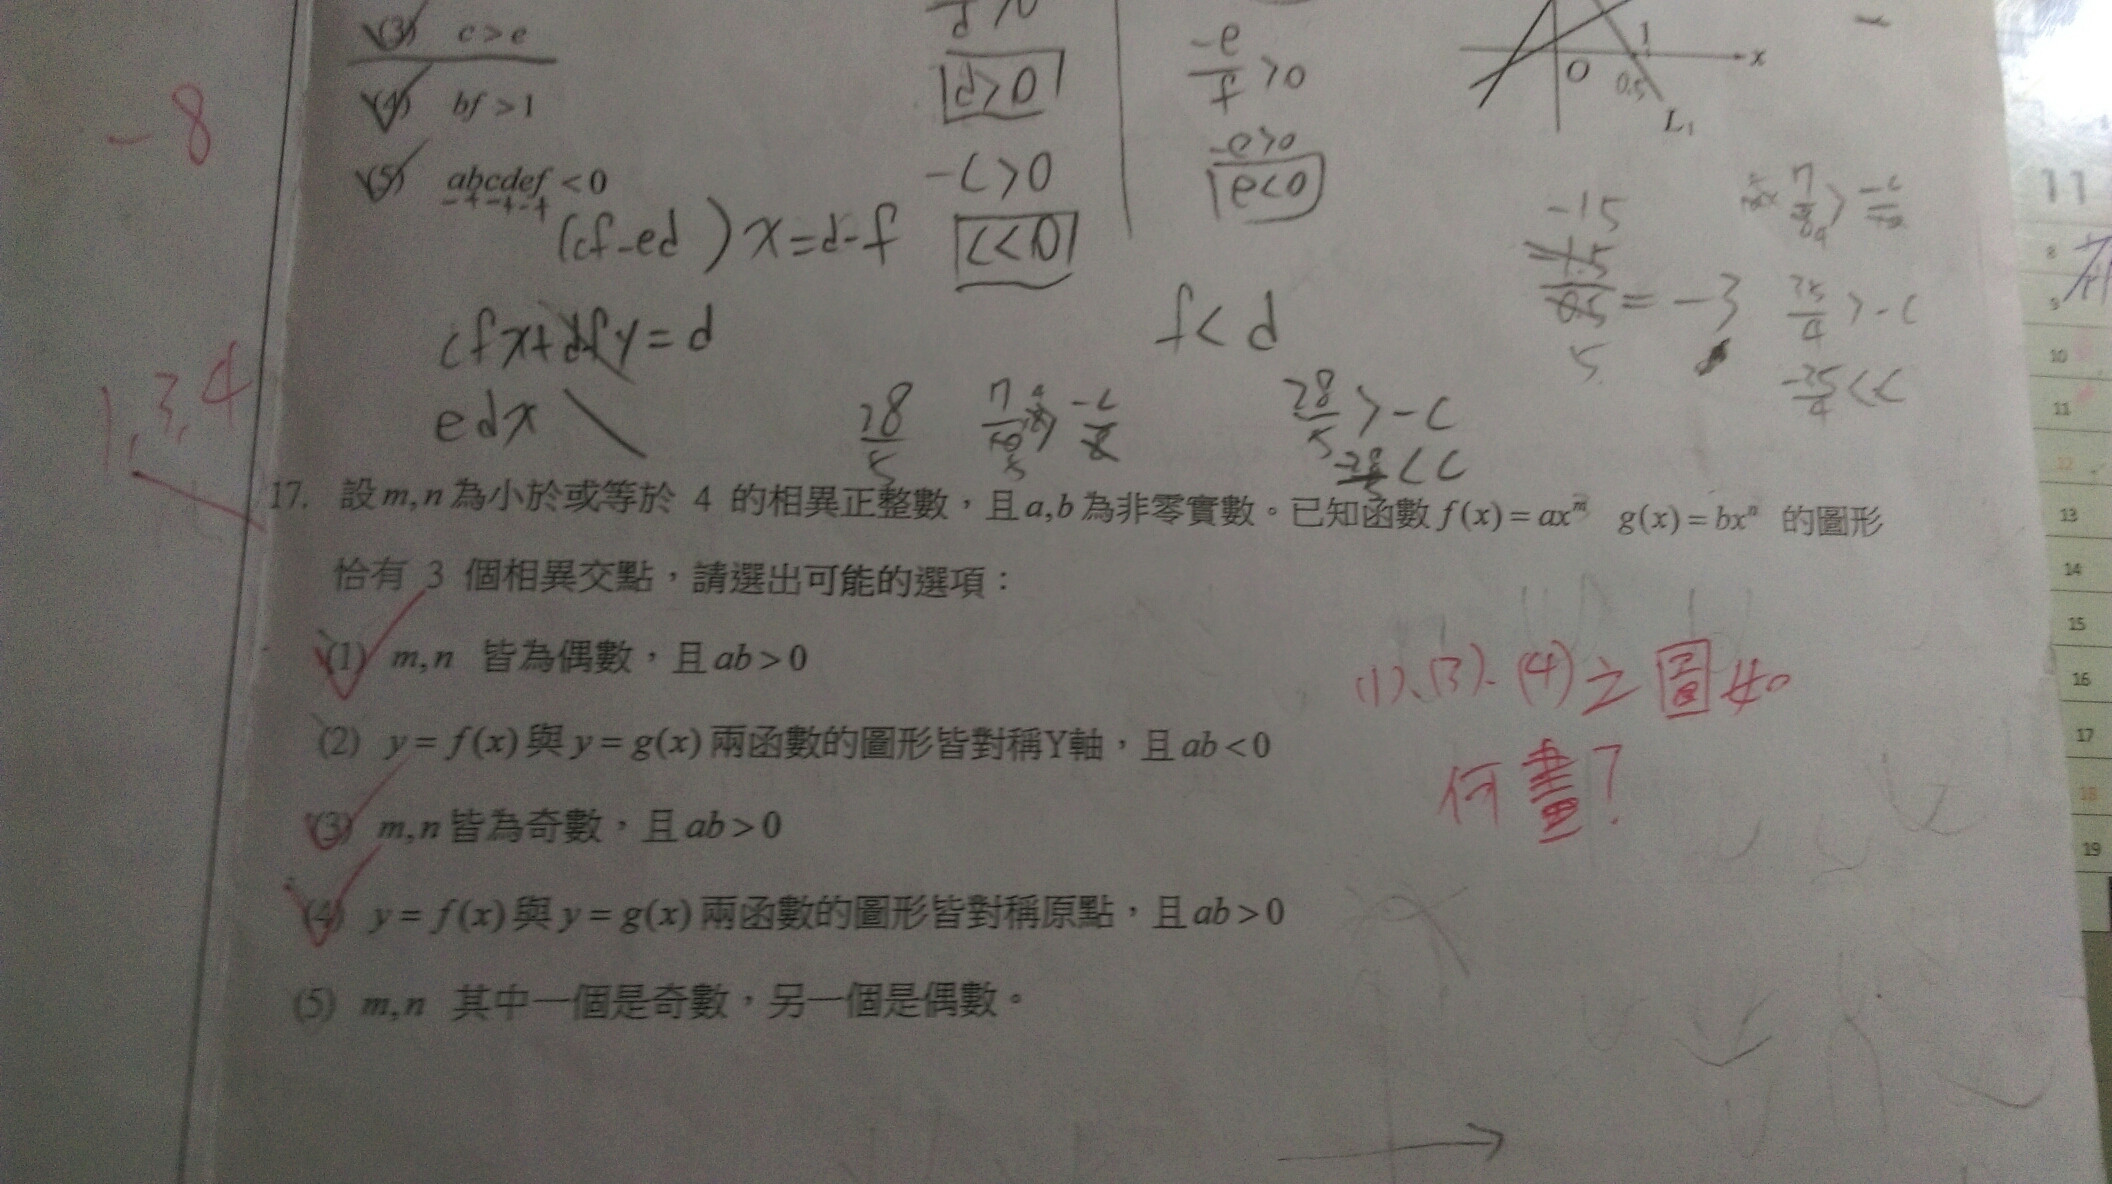 (3) c > e
d > 0
-e/f > 0
1
O
x
0.5
L₁
(4) bf > 1
-8
-e > 0
e < 0
(5) abcdef < 0
- + - + - +
-c > 0
c < 0
(cf-ed)x = d-f
-15
= -3
5
25/4 > -c
-25/4 < c
cfx+dfy = d
f < d
edx
28/5
28/5 > -c
-28/5 < c
1,3,4
17. 設m,n為小於或等於 4 的相異正整數，且a,b為非零實數。已知函數f(x)=axᵐ g(x)=bxⁿ 的圖形
恰有 3 個相異交點，請選出可能的選項：
(1) m,n 皆為偶數，且ab>0
(2) y=f(x)與y=g(x)兩函數的圖形皆對稱Y軸，且ab<0
(3) m,n皆為奇數，且ab>0
(4) y=f(x)與y=g(x)兩函數的圖形皆對稱原點，且ab>0
(5) m,n 其中一個是奇數，另一個是偶數。
(1)、(3)、(4)之圖如
何畫？
11
8
9
10
11
12
13
14
15
16
17
18
19